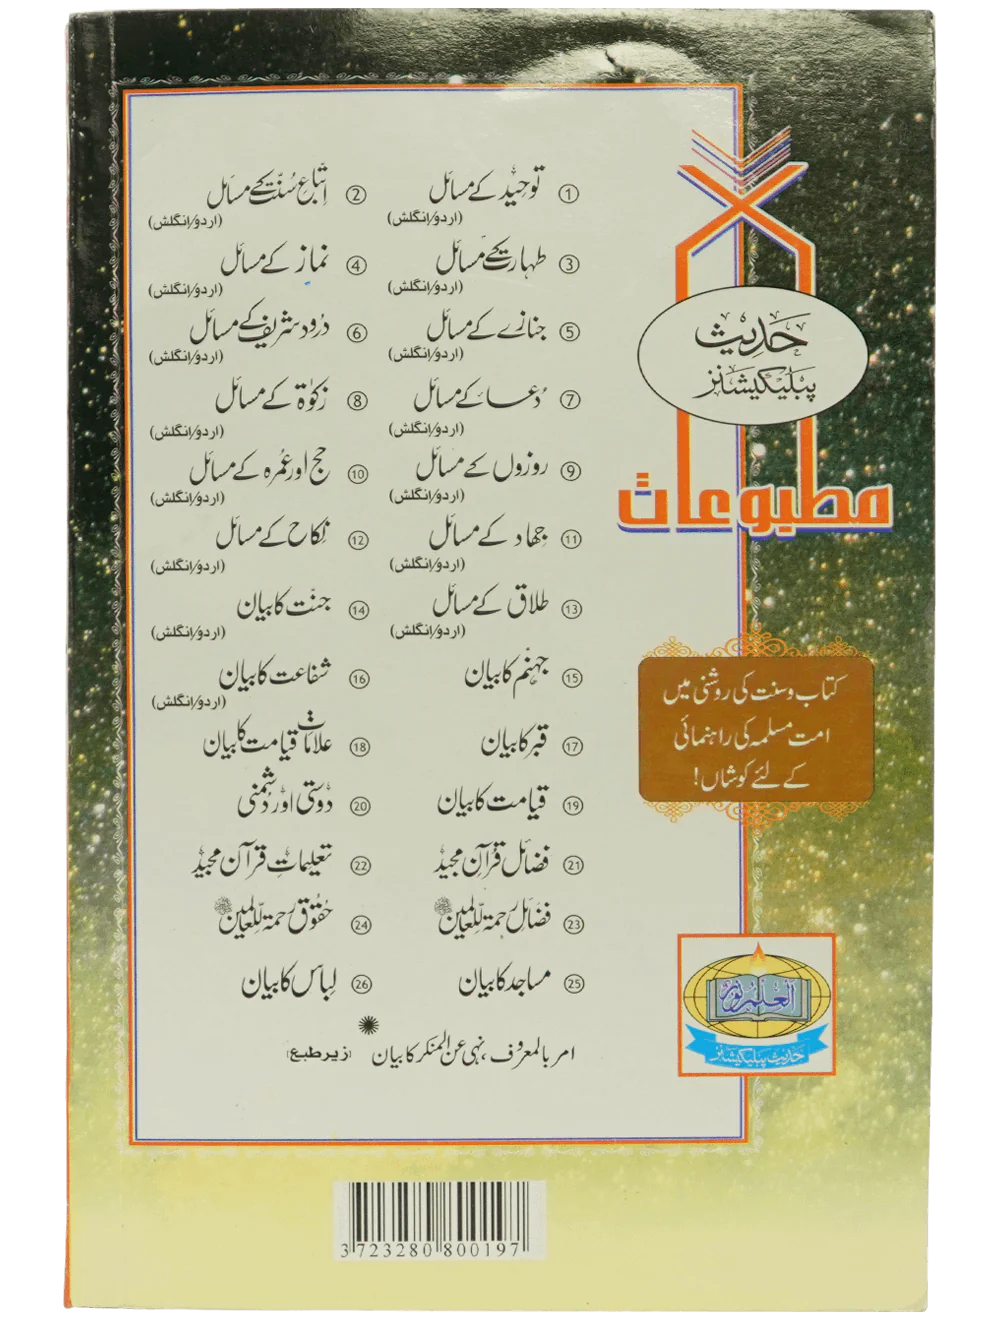 حدیث
پبلیکیشنز
مطبوعات
① توحید کے مسائل (اردو/انگلش)
② اتباع سنت کے مسائل (اردو/انگلش)
③ طہارت کے مسائل (اردو/انگلش)
④ نماز کے مسائل (اردو/انگلش)
⑤ جنازے کے مسائل (اردو/انگلش)
⑥ درود شریف کے مسائل (اردو/انگلش)
⑦ دُعا کے مسائل (اردو/انگلش)
⑧ زکوٰۃ کے مسائل (اردو/انگلش)
⑨ روزوں کے مسائل (اردو/انگلش)
⑩ حج اور عمرہ کے مسائل (اردو/انگلش)
⑪ جہاد کے مسائل (اردو/انگلش)
⑫ نکاح کے مسائل (اردو/انگلش)
⑬ طلاق کے مسائل (اردو/انگلش)
⑭ جنت کا بیان (اردو/انگلش)
⑮ جہنم کا بیان
⑯ شفاعت کا بیان (اردو/انگلش)
⑰ قبر کا بیان
⑱ علامات قیامت کا بیان
⑲ قیامت کا بیان
⑳ دوستی اور دشمنی
㉑ فضائل قرآن مجید
㉒ تعلیماتِ قرآن مجید
㉓ فضائل رحمۃ للعالمین ﷺ
㉔ حقوق رحمۃ للعالمین ﷺ
㉕ مساجد کا بیان
㉖ لباس کا بیان
امر بالمعروف، نہی عن المنکر کا بیان (زیر طبع)
کتاب و سنت کی روشنی میں
امت مسلمہ کی راہنمائی
کے لئے کوشاں!
العلم نور
حدیث پبلیکیشنز
3723280800197